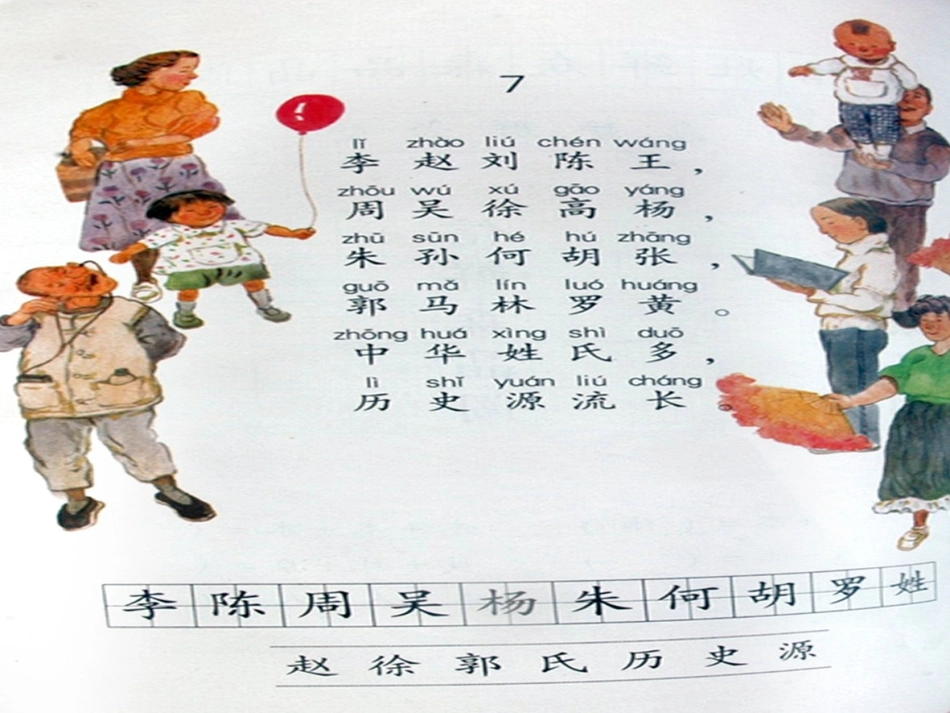 7
lǐ zhào liú chén wáng
李 赵 刘 陈 王，
zhōu wú xú gāo yáng
周 吴 徐 高 杨，
zhū sūn hé hú zhāng
朱 孙 何 胡 张，
guō mǎ lín luó huáng
郭 马 林 罗 黄。
zhōng huá xìng shì duō
中 华 姓 氏 多，
lì shǐ yuán liú cháng
历 史 源 流 长。
李 陈 周 吴 杨 朱 何 胡 罗 姓
赵 徐 郭 氏 历 史 源